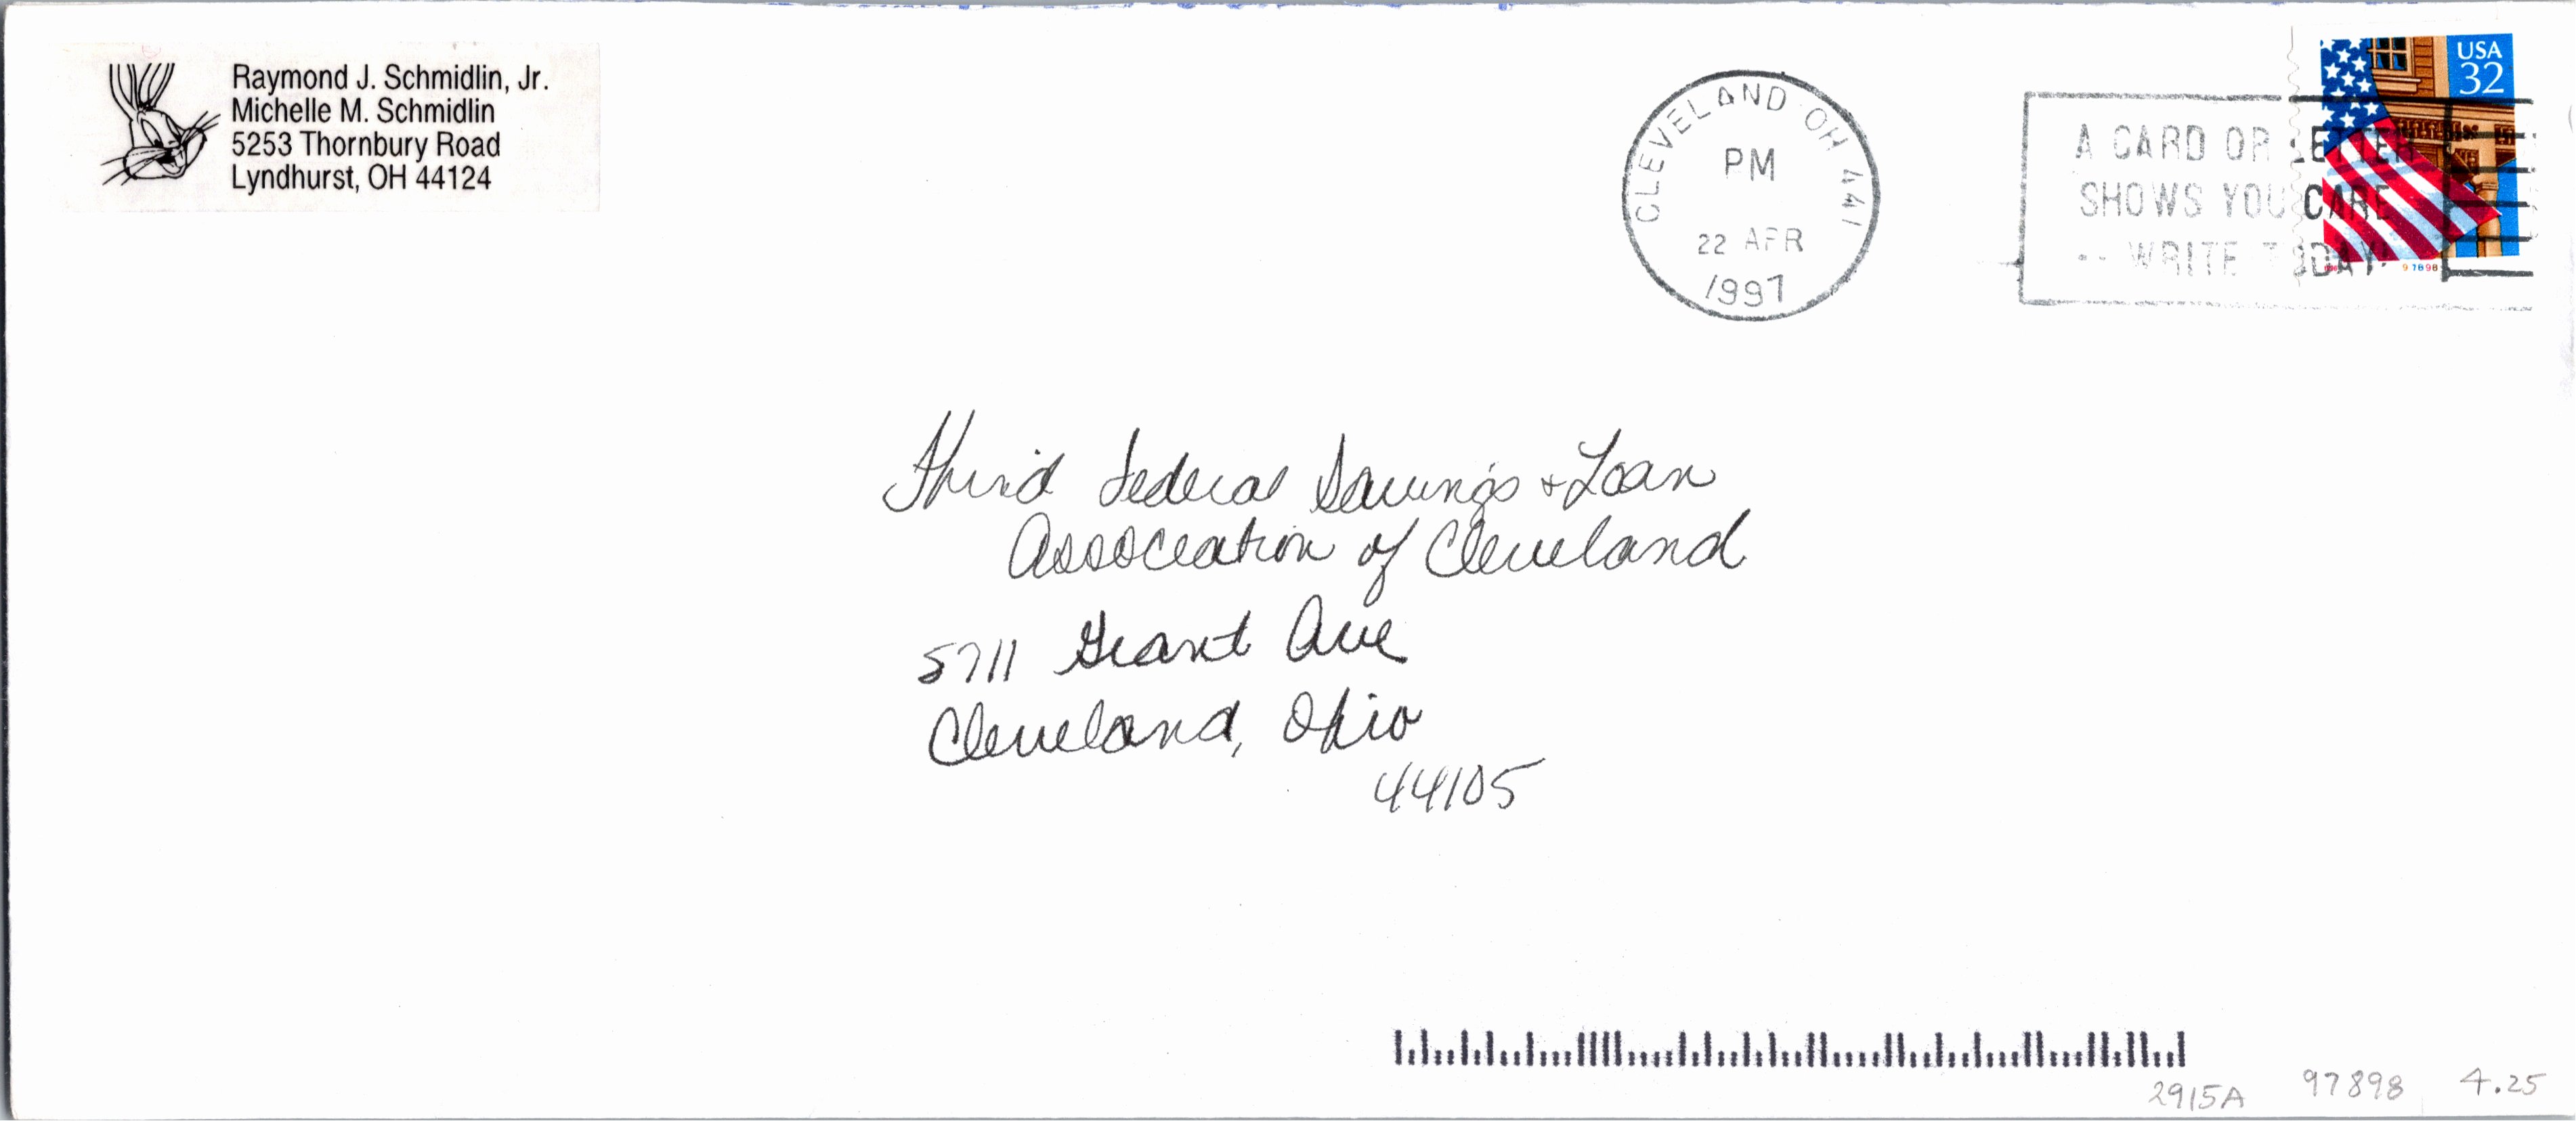 Raymond J. Schmidlin, Jr.
Michelle M. Schmidlin
5253 Thornbury Road
Lyndhurst, OH 44124
CLEVELAND OH 441
PM
22 APR
1997
A CARD OR LETTER
SHOWS YOU CARE
-- WRITE TODAY!
USA
32
97898
Third Federal Savings + Loan
Association of Cleveland
5711 Grant Ave
Cleveland, Ohio
44105
2915A 97898 4.25